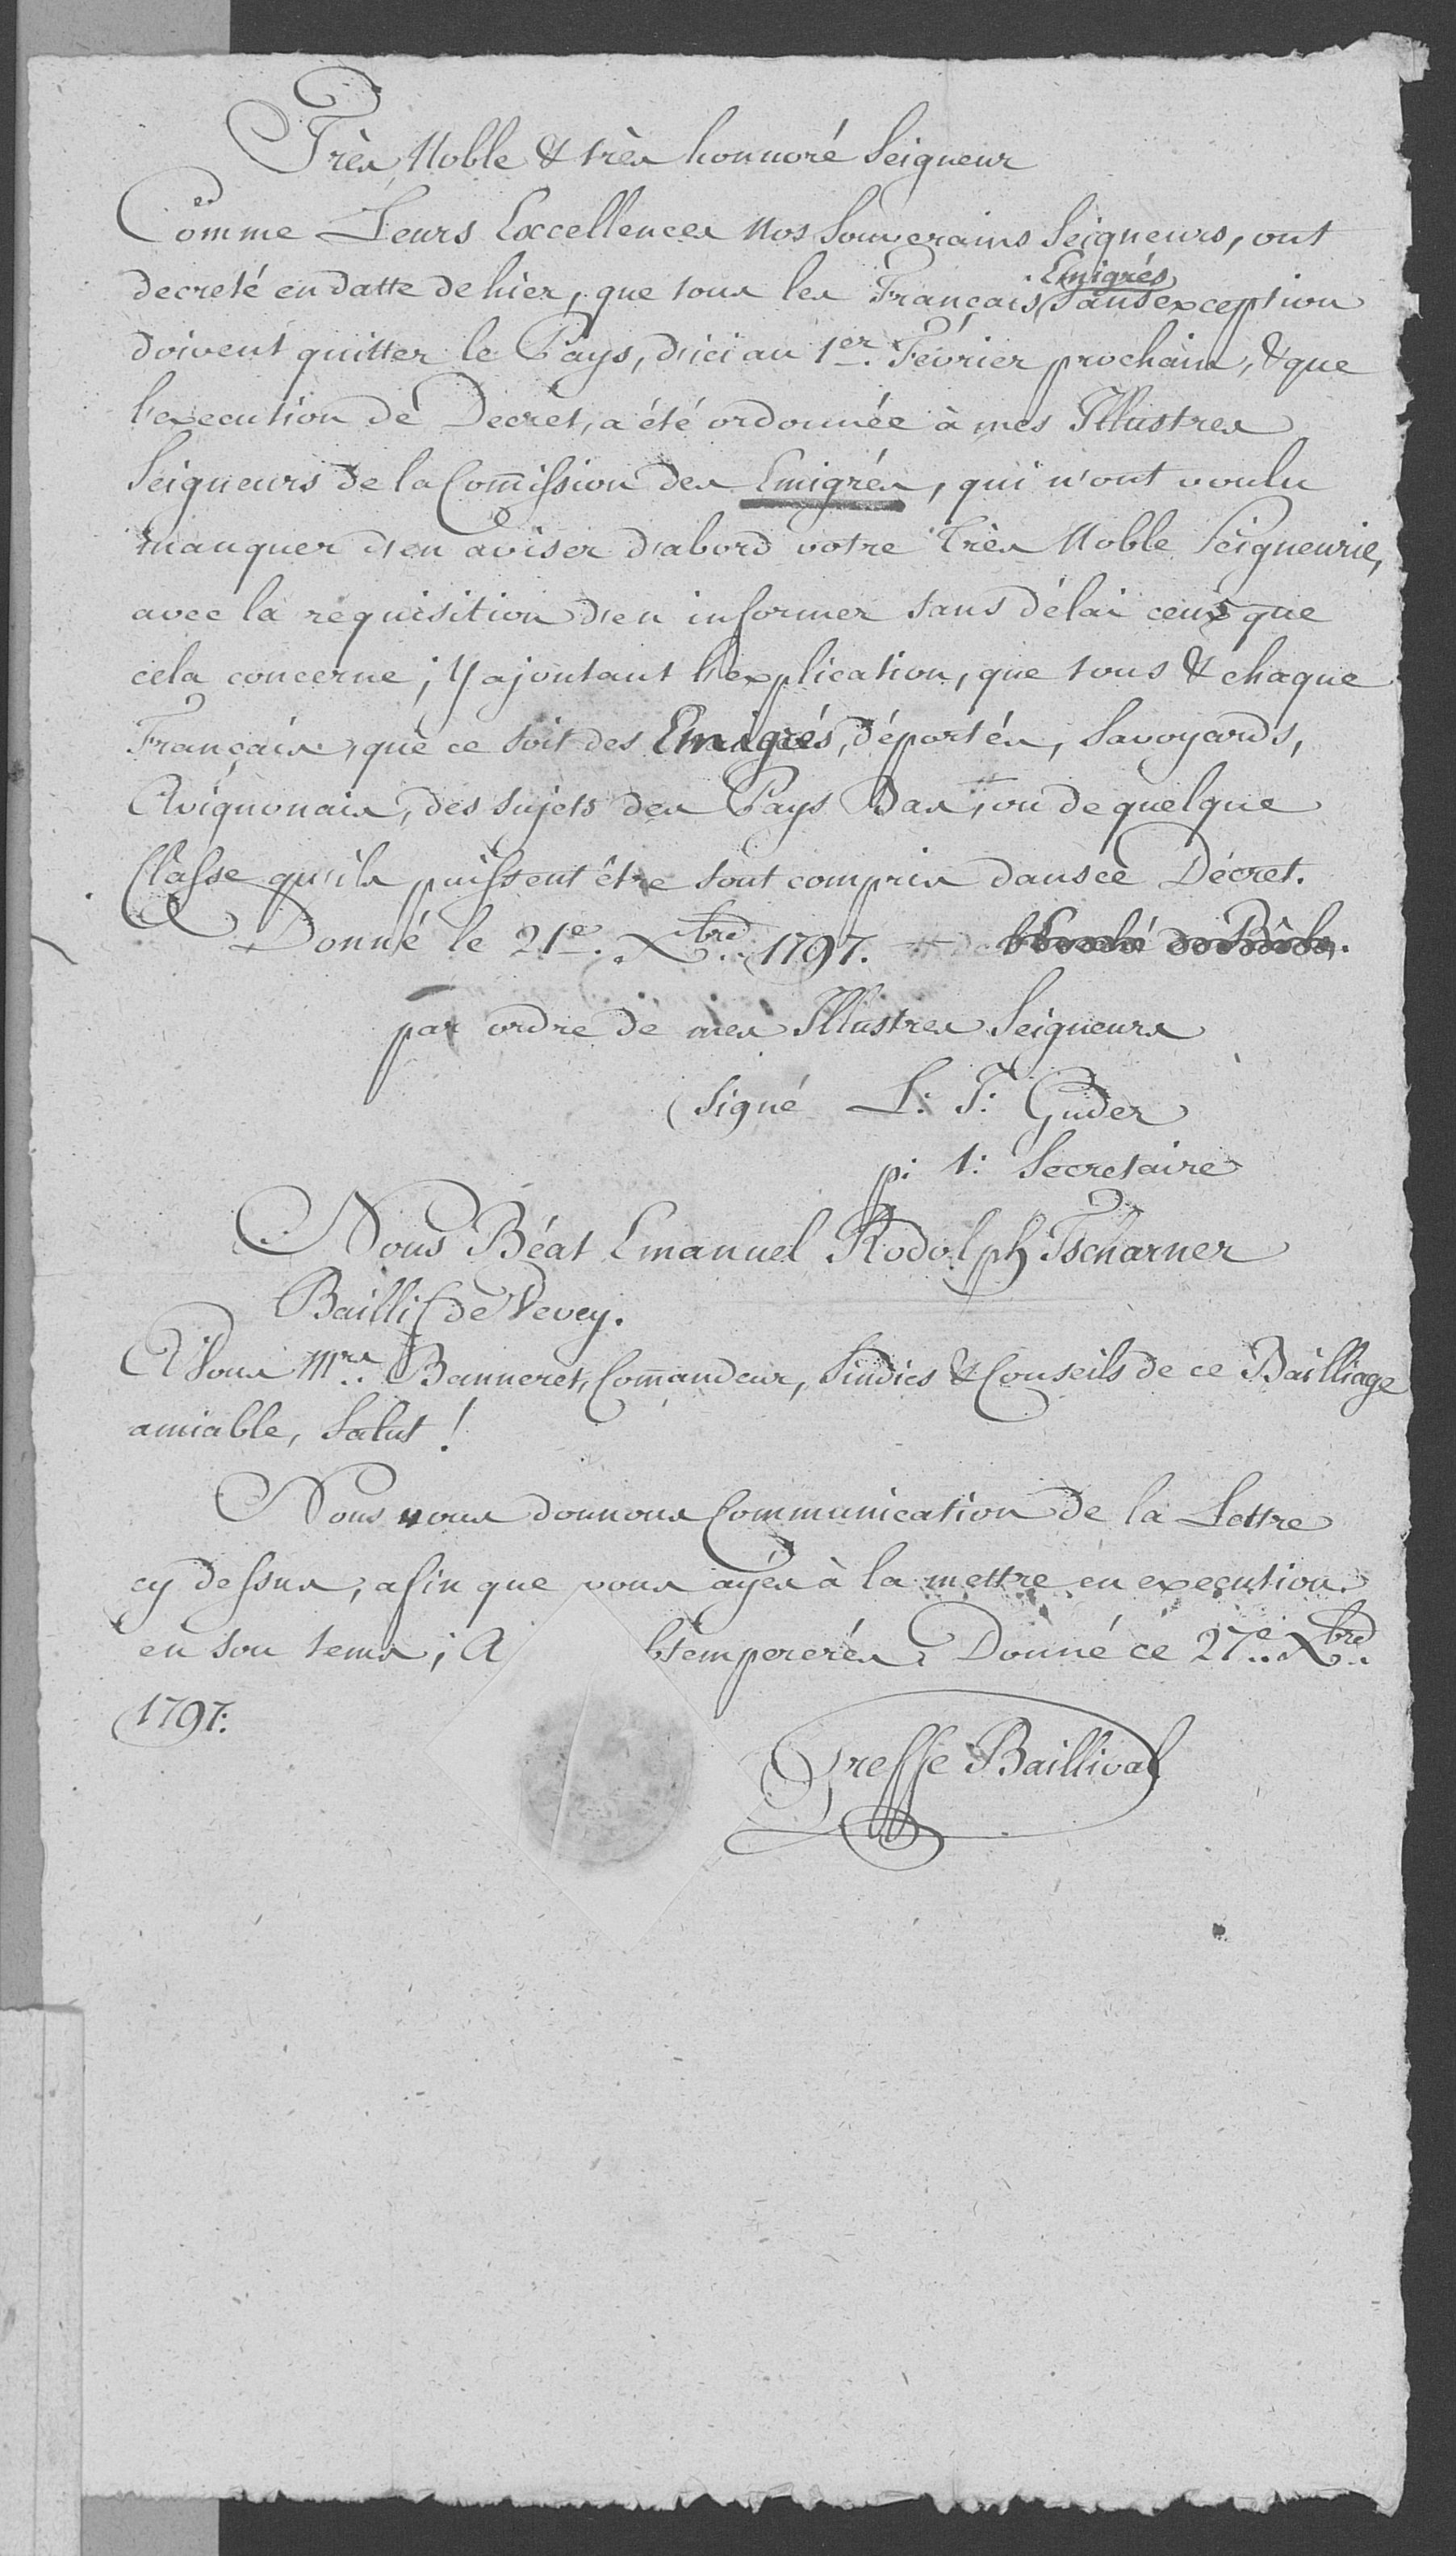 Très Noble & très honnoré Seigneur
Comme Leurs Excellences Nos Souverains Seigneurs, ont
decreté en datte de hier, que tous les Francais Emigrés sans exception
doivent quitter le Pays, d'ici au 1er. Février prochain, & que
l'execution de Decret, a été ordonnée à mes Illustres
Seigneurs de la Com̄ission des Emigrés, qui n'ont voulu
manquer d'en aviser d'abord votre Très Noble Seigneurie,
avec la requisition d'en informer sans délai ceux que
cela concerne; y ajoutant l'explication, que tous & chaque
Français, que ce soit des Emigrés, déportés, Savoyards,
Avignonais, des sujets des Pays Bas, ou de quelque
Classe qu'ils puissent être sont compris dans ce Décret.
Donné le 21e. Xbre. 1797.
par ordre de mes Illustres Seigneurs
signé L: F: Guder
p: t: Secretaire
Nous Béat Emanuel Rodolph Tscharner
Baillif de Vevey.
A Vous Mrs. Banneret, Com̄andeur, Sindics & Conseils de ce Bailliage
amiable, Salut!
Nous vous donnons Communication de la Lettre
cy dessus, afin que vous ayés à la mettre en execution
en son tems; A btempererés. Donné ce 27e. Xbre.
1797:
Greffe Baillival